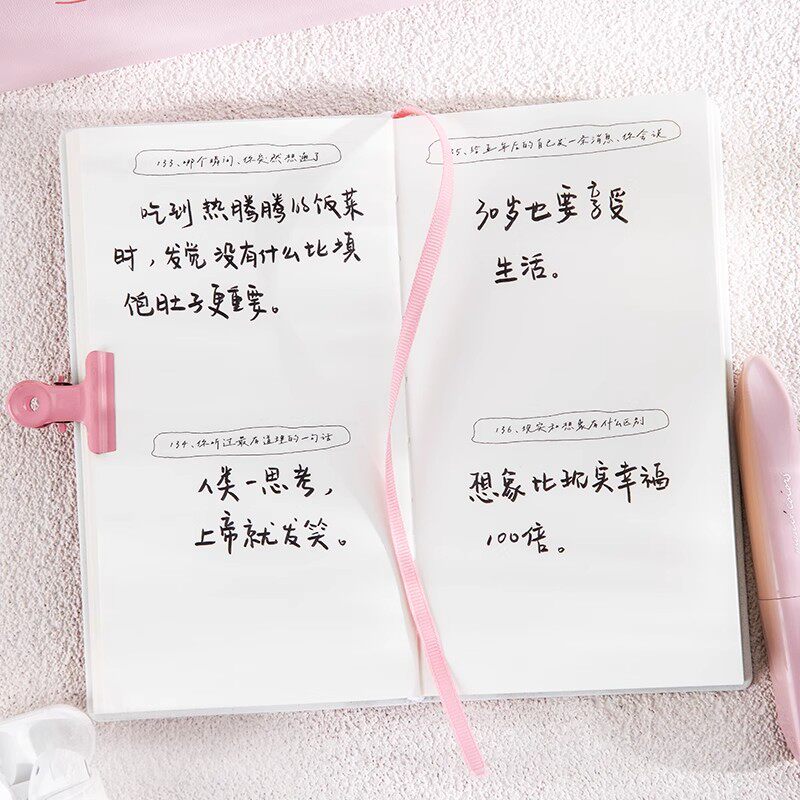 133、哪个瞬间、你突然想通了
吃到热腾腾的饭菜
时，发觉没有什么比填
饱肚子更重要。
134、你听过最有道理的一句话
人类一思考，
上帝就发笑。
35、给五年后的自己发一条消息、你会说
30岁也要享受
生活。
136、现实和想象有什么区别
想象比现实幸福
100倍。